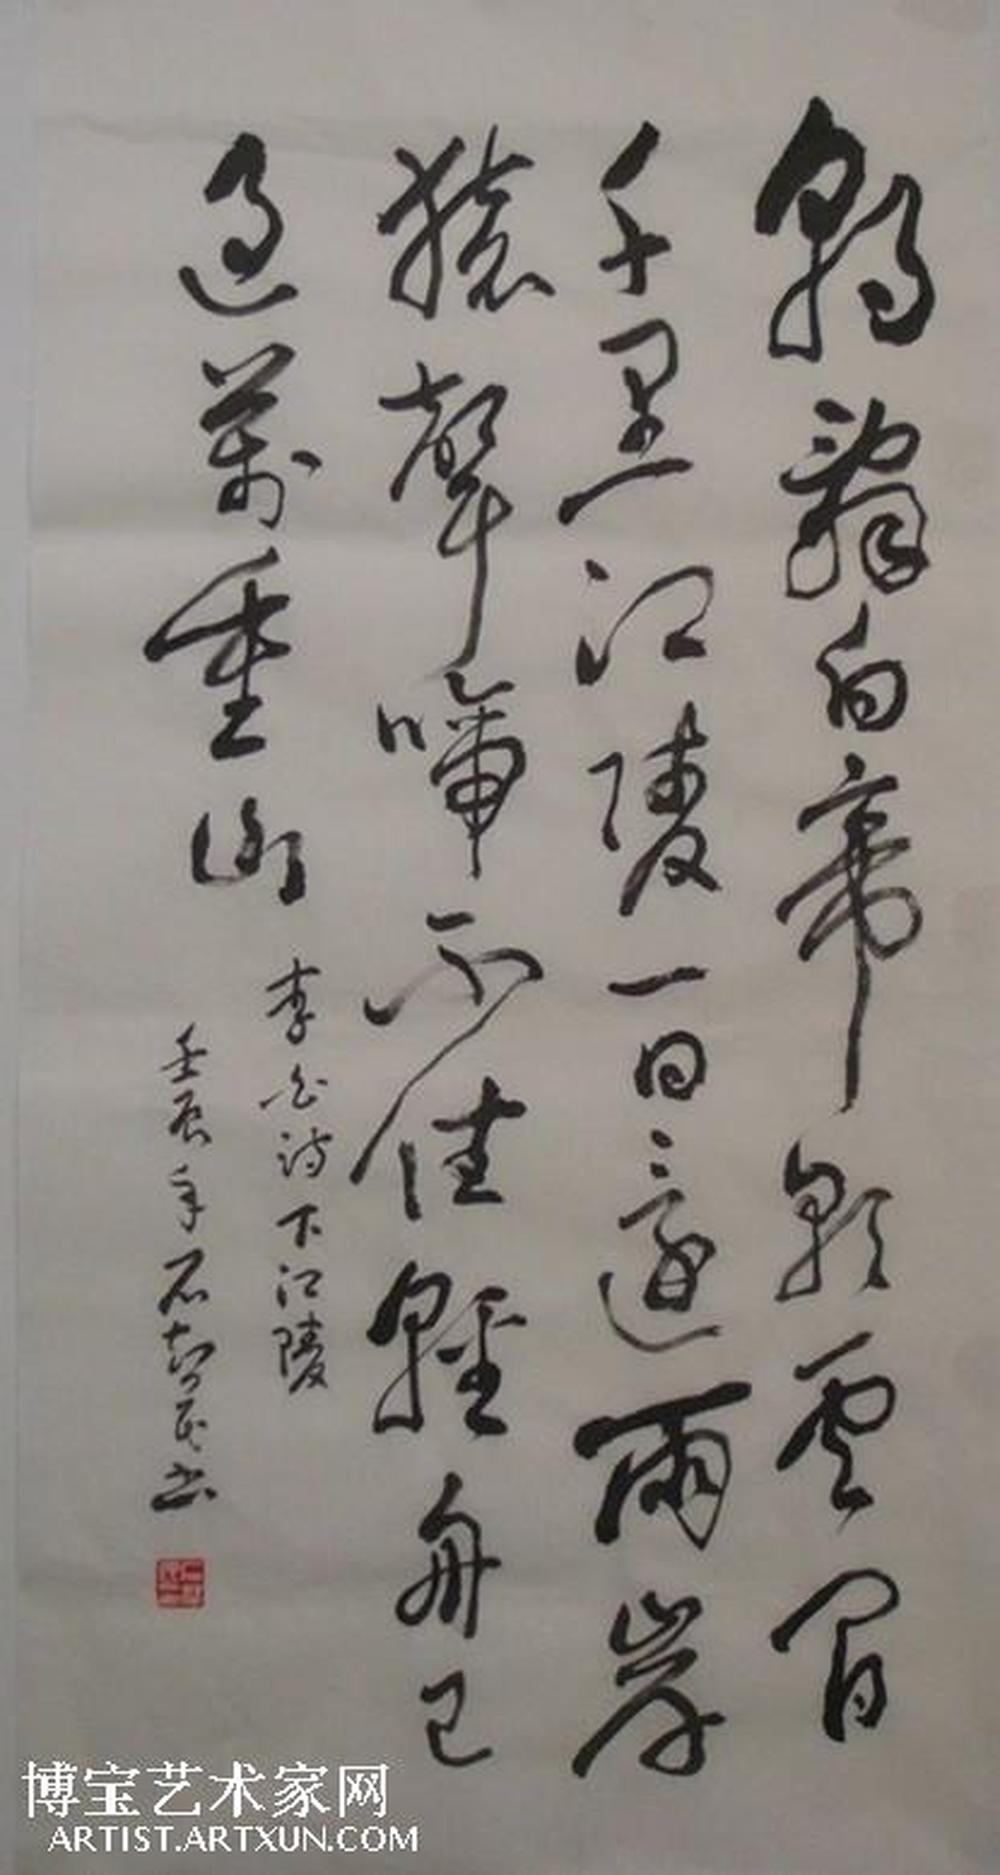 朝辭白帝彩雲間
千里江陵一日還兩岸
猿聲啼不住輕舟已
過萬重山
李白詩下江陵
壬辰年石書
博宝艺术家网
ARTIST.ARTXUN.COM